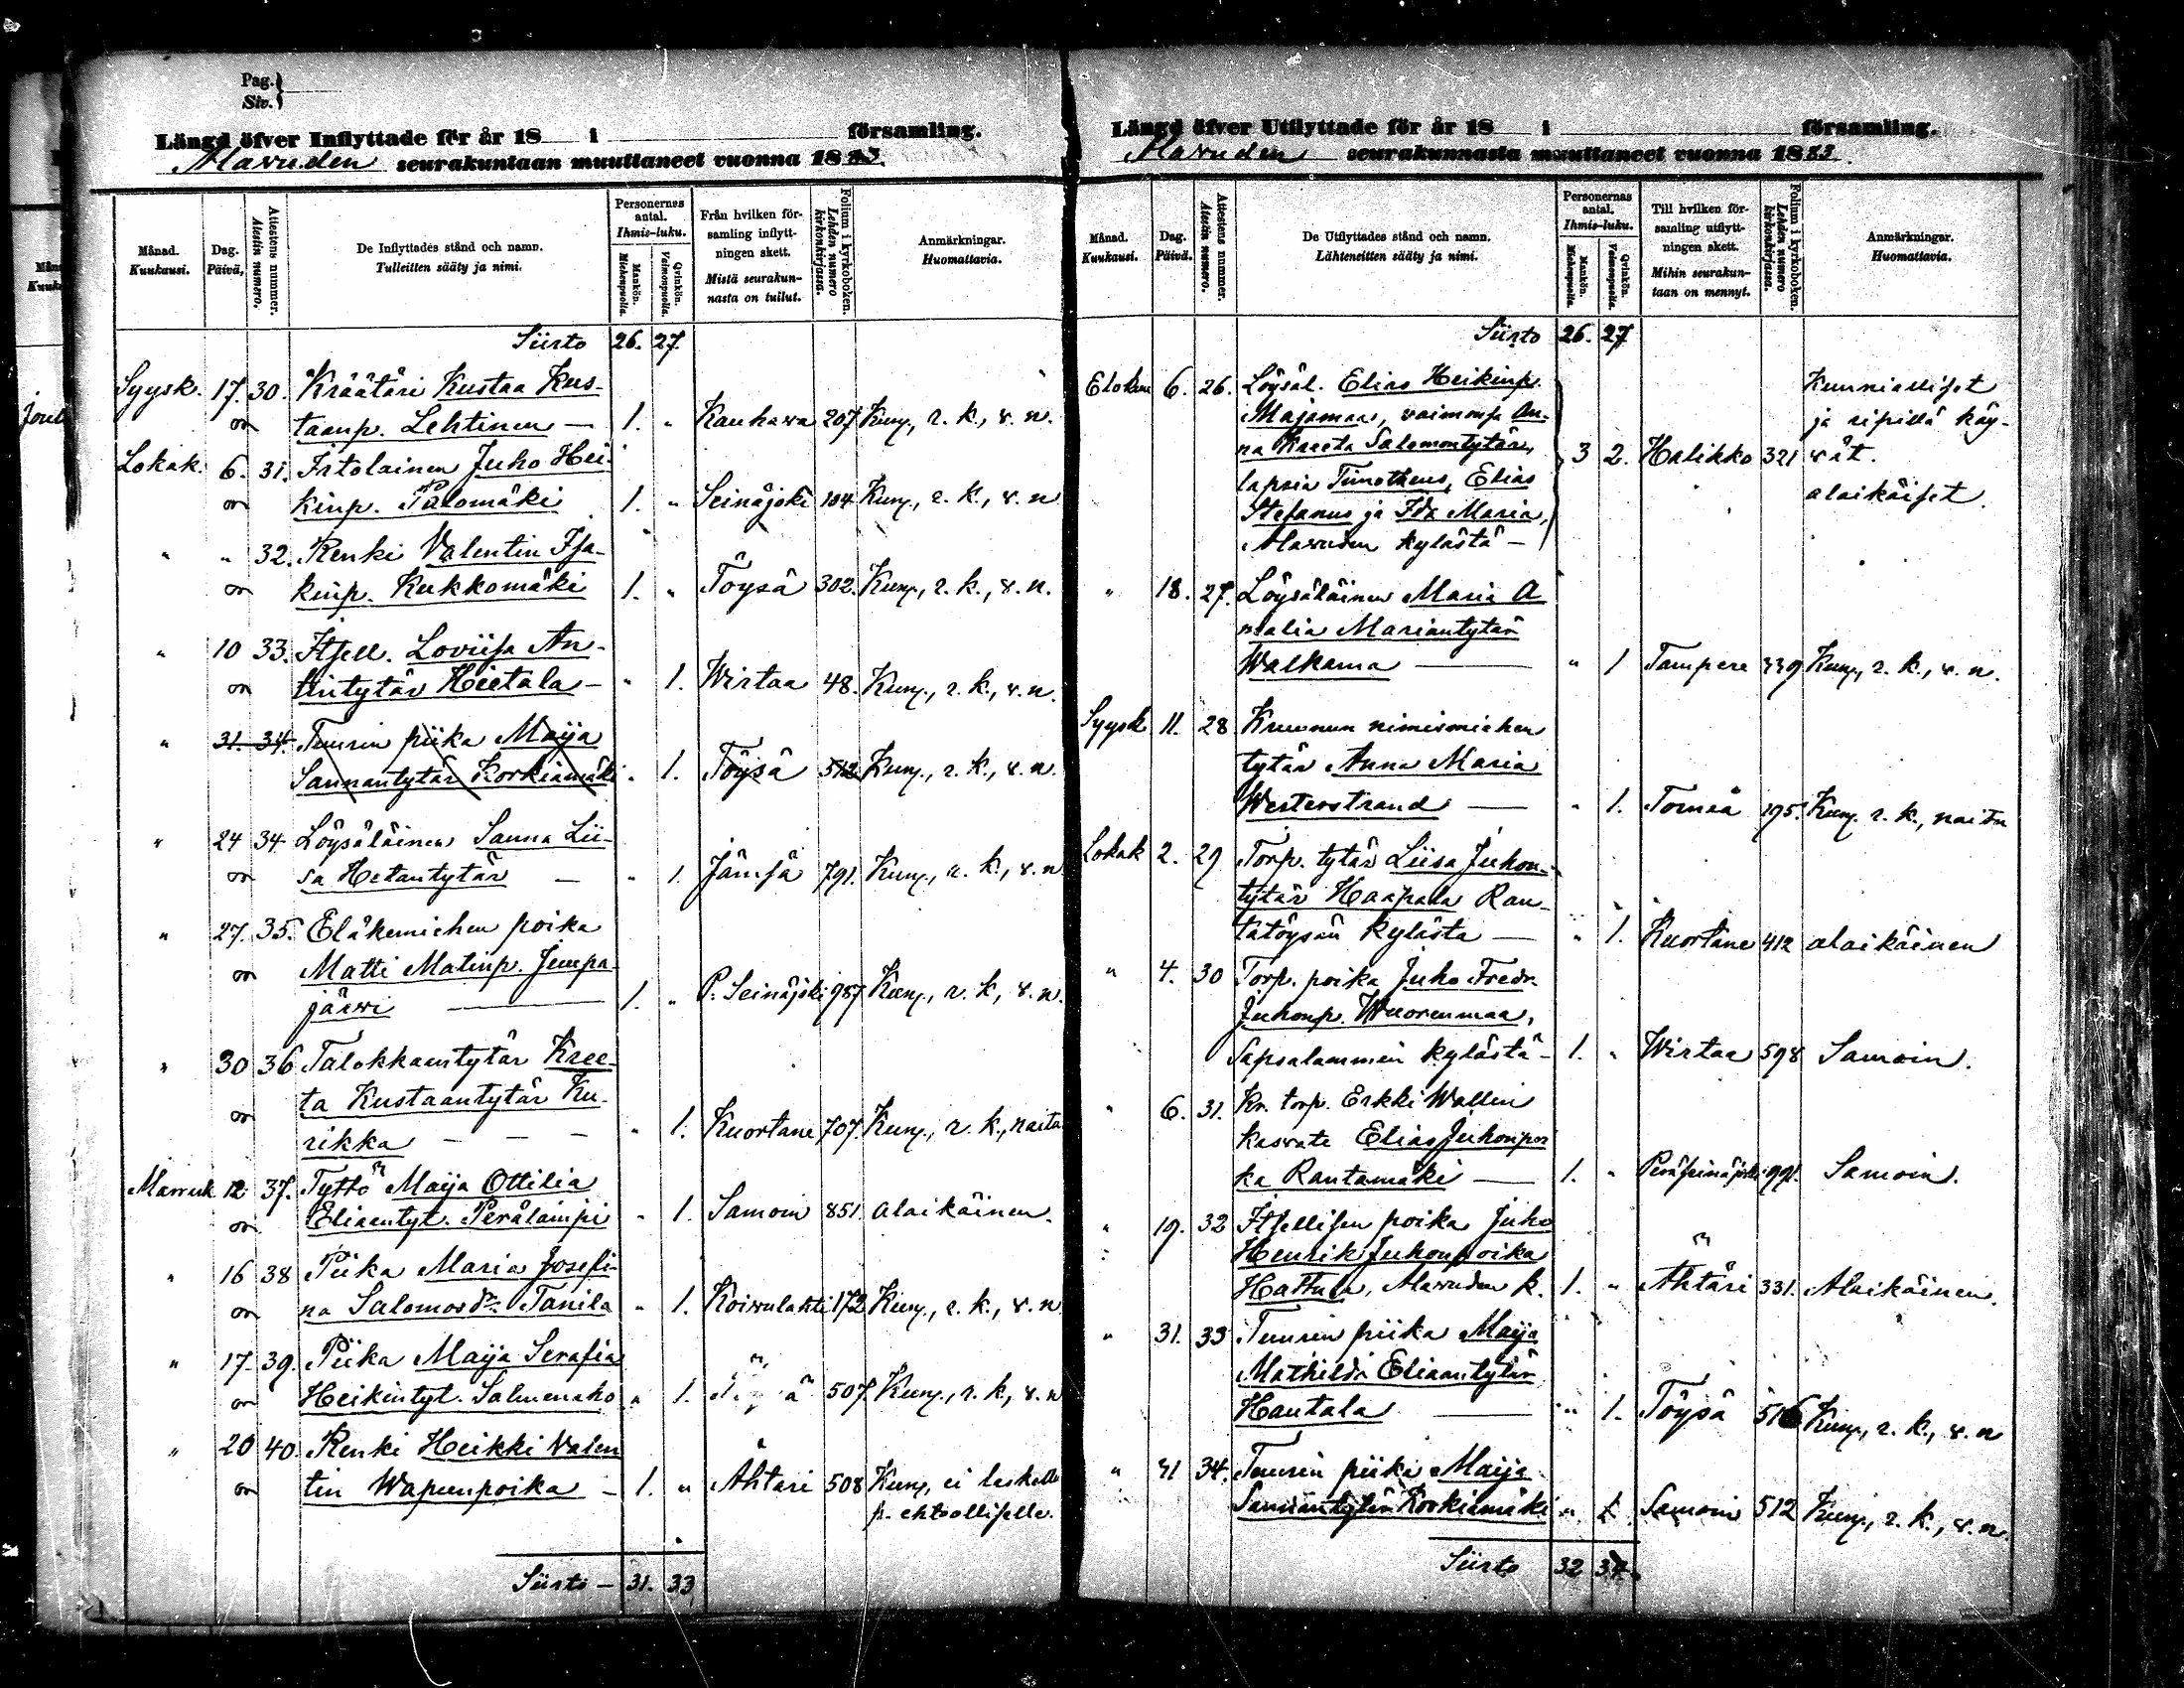 Pag.
Siv.
Längd öfver Inflyttade för år 18 i församling.
Alavuden seurakuntaan muuttaneet vuonna 1883.
Månad. Kuukausi.
Dag. Päivä.
Attestens nummer. Atestin numero.
De Inflyttades stånd och namn.
Tulleitten sääty ja nimi.
Personernas antal. Ihmis-luku.
Mankön. Miehenpuolia.
Qvinkön. Vaimonpuolia.
Från hvilken församling inflyttningen skett.
Mistä seurakunnasta on tullut.
Folium i kyrkoboken. Lehden numero kirkonkirjassa.
Anmärkningar.
Huomattavia.
Siirto 26. 27.
Syysk. 17. 30. Kräätäri Kustaa Kus-
taanp. Lehtinen — 1. „ Kauhava 207 Kuny., r. k., v. n.
Lokak. 6. 31. Irtolainen Juho Hei-
kinp. Palomäki 1. „ Seinäjoki 104 Kuny., r. k., v. n
„ „ 32. Renki Valentin Isa-
kinp. Kukkomäki 1. „ Töysä 302. Kuny., r. k., v. n.
„ 10 33. Itsell. Loviisa An-
tintytär Hietala — „ 1. Wirtaa 48. Kuny., r. k., v. n.
„ 31. 34. Tuurin piika Maija
Sannantytär Korkiamäki „ 1. Töysä 512 Kuny., r. k., v. n.
„ 24 34 Löysäläinen Sanna Lii-
sa Hetantytär — „ 1. Jämsä 791. Kuny., r. k., v. n
„ 27. 35. Eläkemiehen poika
Matti Matinp. Jumpa-
järvi — 1. „ P. Seinäjoki 987 Kuny., r. k., v. n.
„ 30 36 Talokkaantytär Kree-
ta Kustaantytär Ku-
rikka — — — „ 1. Kuortane 707. Kuny., r. k., naitu
Marrask 12 37. Tyttö Maija Ottilia
Eliaantyt. Perälampi „ 1. Samoin 851. alaikäinen.
„ 16 38 Piika Maria Josefi-
na Salomosdr. Tanila „ 1. Koivulahti 172 Kuny., r. k., v. n
„ 17. 39. Piika Maija Serafia
Heikintyt. Salmenaho „ 1. 507. Kuny., r. k., v. n
„ 20 40. Renki Heikki Valen
tin Wapunpoika — 1. „ Ähtäri 508 Kuny, ei laskettu
p. ehtoolliselle.
Siirto — 31. 33
Längd öfver Utflyttade för år 18 i församling.
Alavuden seurakunnasta muuttaneet vuonna 1883.
Månad. Kuukausi.
Dag. Päivä.
Attestens nummer. Atestin numero.
De Utflyttades stånd och namn.
Lähteneitten sääty ja nimi.
Personernas antal. Ihmis-luku.
Mankön. Miehenpuolia.
Qvinkön. Vaimonpuolia.
Till hvilken församling utflyttningen skett.
Mihin seurakuntaan on mennyt.
Folium i kyrkoboken. Lehden numero kirkonkirjassa.
Anmärkningar.
Huomattavia.
Siirto 26. 27
Elokuu 6. 26. Löysäl. Elias Heikinp. Kunnialliset
Majamaa, vaimonsa An- ja ripillä käy-
na Kreeta Salomontytär, 3 2. Halikko 321 vät.
lapsia Timotheus, Elias alaikäiset.
Stefanus ja Ida Maria,
Alavuden kylästä —
„ 18. 27. Löysäläinen Maria A
malia Mariantytär
Walkama — „ 1 Tampere 339 Kuny, r. k., v. n.
Syysk 11. 28 Kruunun nimismiehen
tytär Anna Maria
Westerstrand — „ 1. Torneå 195. Kuny. r. k., naitu
Lokak 2. 29 Torp. tytär Liisa Juhon-
tytär Haapala Ran-
tatöysän kylästä — „ 1. Kuortane 412 alaikäinen
„ 4. 30 Torp. poika Juho Fredr.
Juhonp. Wuorenmaa,
Sapsalammin kylästä — 1. „ Wirtaa 598 Samoin.
„ 6. 31. Kr. torp. Erkki Wallin
kasvate Elias Juhonpoi
ka Rantamäki — 1. „ Peräseinäjoki 991. Samoin.
„ 19. 32 Itsellisen poika Juho
Henrik Juhonpoika
Hattula, Alavuden k. 1. „ Ähtäri 331. Alaikäinen.
„ 31. 33 Tuurin piika Maija
Mathilda Eliaantytär
Hautala — „ 1. Töysä 516 Kuny, r. k., v. n
„ 31 34. Tuurin piika Maija
Sannantytär Korkiamäki „ 1. Samoin 512 Kuny., r. k., v. n.
Siirto 32 34